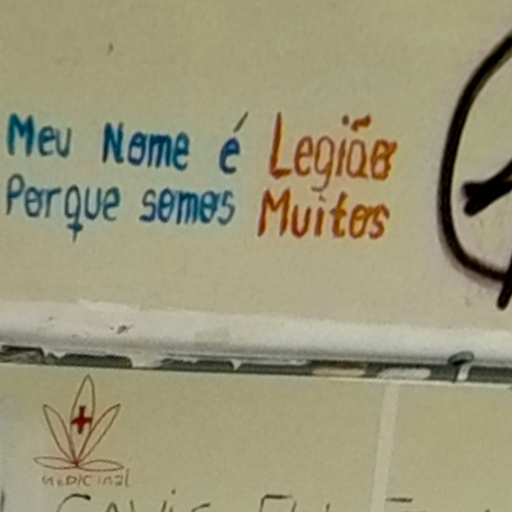 Meu Nome é Legião
Porque somos Muitos
MeDICinal